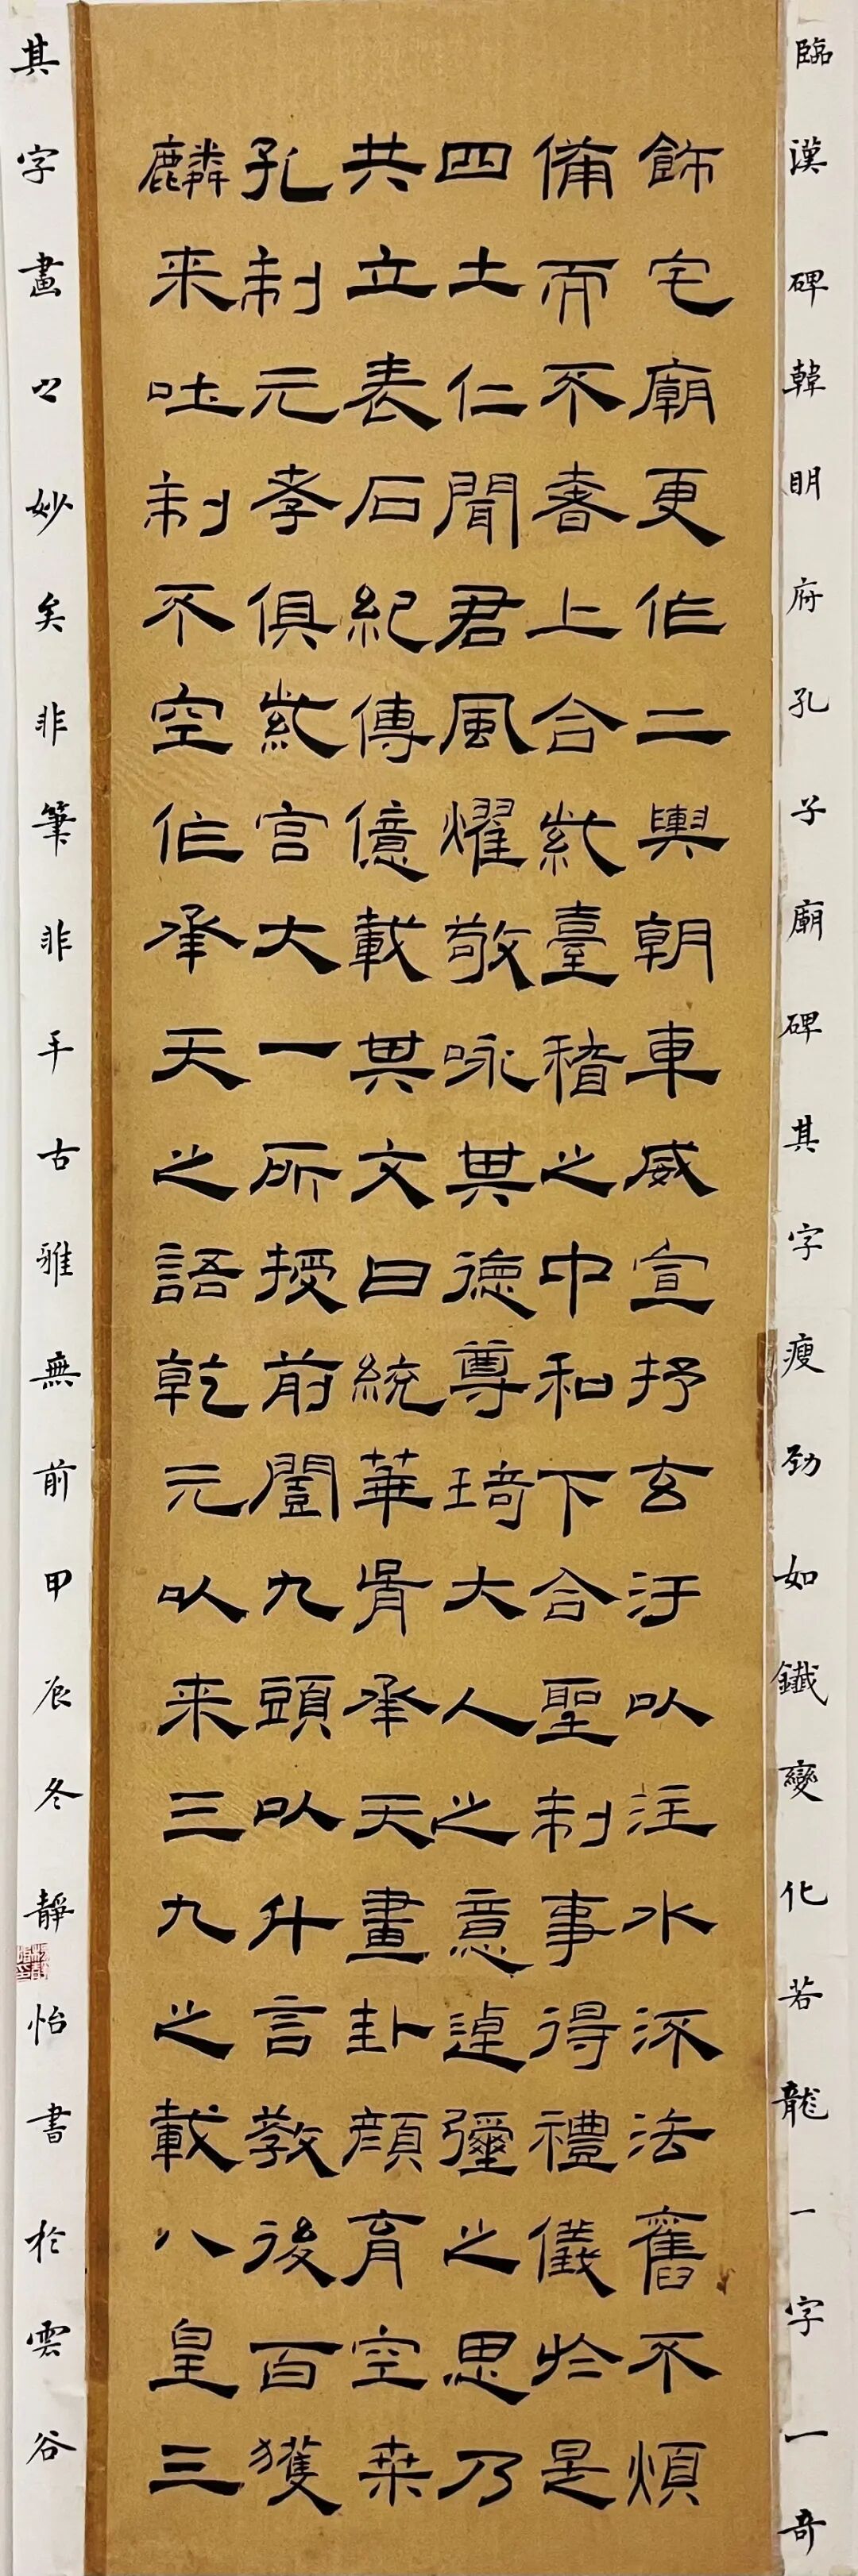 臨漢碑韓明府孔子廟碑其字瘦勁如鐵變化若龍一字一奇
飾宅廟更作二輿朝車威宣抒玄汙以注水流法舊不煩
備而不奢上合紫臺稽之中和下合聖制事得禮儀於是
四土仁聞君風燿敬咏其德尊琦大人之意逴彌之思乃
共立表石紀傳億載其文曰統華胥承天畫卦顏育空桑
孔制元孝俱紫宮大一所授前闓九頭以升言教後百獲
麟来吐制不空作承天之語乾元以来三九之載八皇三
其字畫之妙矣非筆非手古雅無前甲辰冬靜怡書於雲谷